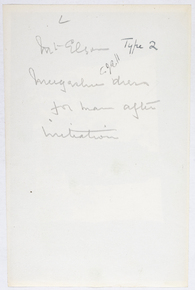 L
Mt Elgon Type 2
dress
for man after
initiation